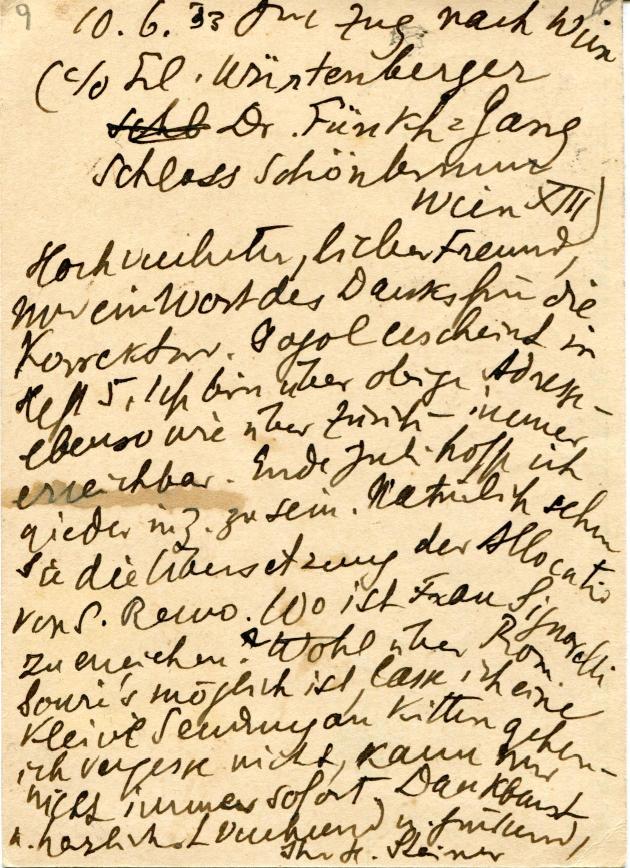 9
10.6.33 Im Zug nach Wien
(c/o Frl. Würstenberger
Dr. Fünkh=Gang
Schloss Schönbrunn
Wien XIII)
Hochverehrter, lieber Freund,
nur ein Wort des Danks für die
Korrektur. Gogol erscheint in
Heft 5. Ich bin über obige Adresse –
ebenso wie über Zürich – immer
erreichbar. Ende Juli hoffe ich
wieder in Z. zu sein. Natürlich sehn
Sie die Übersetzung der Allocutio
von S. Remo. Wo ist Frau Signorelli
zu erreichen? Wohl über Rom.
Sowie's möglich ist, lasse ich eine
kleine Sendung an Kitten gehen –
ich vergesse nichts, kann nur
nicht immer sofort. Dankbarst
u. herzlichst verehrend u. grüssend,
Ihr H. Steiner